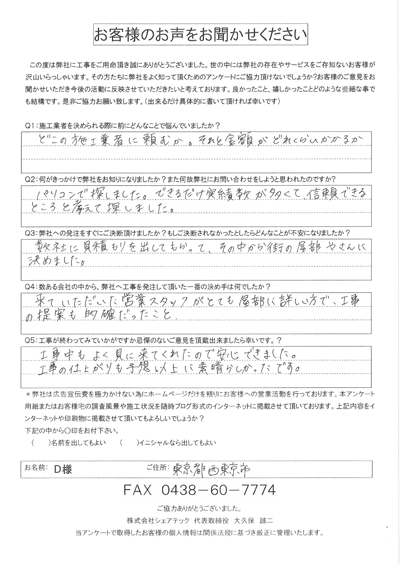 お客様のお声をお聞かせください
この度は弊社に工事をご用命頂き誠にありがとうございました。世の中には弊社の存在やサービスをご存知ないお客様が
沢山いらっしゃいます。その方たちに弊社をよく知って頂くためのアンケートにご協力頂けないでしょうか?お客様のご意見をお
聞かせいただき今後の活動に反映させていただきたいと考えております。良かったこと、嬉しかったことどのような些細な事で
も結構です。是非ご協力お願い致します。(出来るだけ具体的に書いて頂ければ幸いです)
Q1:施工業者を決められる際に前にどんなことで悩んでいましたか?
どこの施工業者に頼むか。それと金額がどれくらいかかるか
Q2:何がきっかけで弊社をお知りになりましたか?また何故弊社にお問い合わせをしようと思われたのですか?
パソコンで探しました。できるだけ実績数が多くて、信頼できる
ところと考えて探しました。
Q3:弊社への発注をすぐにご決断頂けましたか?もしご決断されなかったとしたらどんなことが不安になりましたか?
数社に見積もりを出してもらって、その中から街の屋部やさんに
決めました。
Q4:数ある会社の中から、弊社へ工事を発注して頂いた一番の決め手は何でしたか?
来ていただいた営業スタッフがとても屋部に詳しい方で、工事
の提案も的確だったこと。
Q5:工事が終わってみていかがですか忌憚のないご意見を頂戴出来ましたら幸いです。?
工事中もよく見に来てくれたので安心できました。
工事の仕上がりも予想以上に素晴らしかったです。
*弊社は広告宣伝費を極力かけない為にホームページだけを頼りにお客様への営業活動を行っております。本アンケート
用紙またはお客様宅の調査風景や施工状況を随時ブログ形式のインターネットに掲載させて頂いております。上記内容をイ
ンターネットや印刷物に掲載させて頂いてもよろしいでしょうか?
下記の中から〇印をお付下さい。
( )名前を出してもよい ( )イニシャルなら出してもよい
お名前: D様 ご住所: 東京都西東京市
FAX 0438-60-7774
ご協力ありがとうございました。
株式会社シェアテック 代表取締役 大久保 誠二
当アンケートで取得したお客様の個人情報は関係法規に基づき厳正に管理いたします。